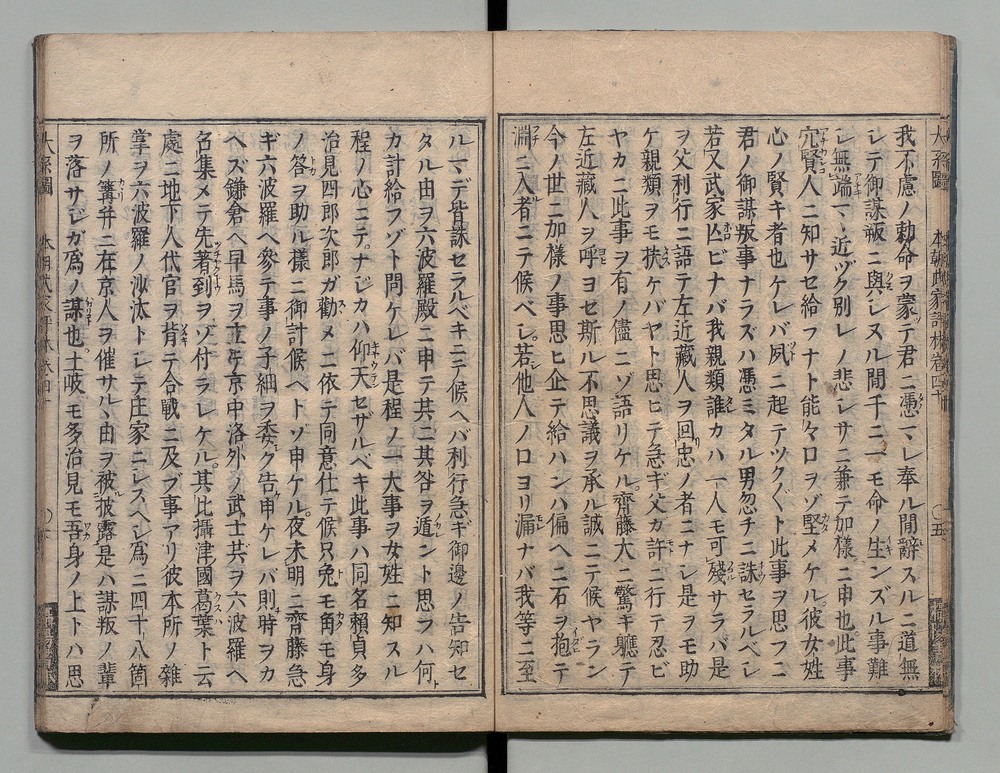 我不慮ノ勅命ヲ蒙テ君ニ憑マレ奉ル間辭スルニ道無
レテ御謀叛ニ與レヌル間千ニ一モ命ノ生ンズル事難
レ無端マヽ近ヅク別レノ悲レサニ兼テ加樣ニ申也此事
穴賢人ニ知サセ給フナト能々口ヲゾ堅メケル彼女姓
心ノ賢キ者也ケレバ夙ニ起テツクヾクト此事ヲ思フニ
君ノ御謀叛事ナラズハ憑ミタル男忽チニ誅セラルベレ
若又武家亡ビナバ我親類誰カハ一人モ可殘サラバ是
ヲ父利行ニ語テ左近藏人ヲ回忠ノ者ニナレ是ヲモ助
ケ親類ヲモ扶ケバヤト思ヒテ急ギ父カ許ニ行テ忍ビ
ヤカニ此事ヲ有ノ儘ニゾ語リケル齊藤大ニ驚キ軈テ
左近藏人ヲ呼ヨセ斯ル不思議ヲ承ル誠ニテ候ヤラン
今ノ世ニ加樣ノ事思ヒ企テ給ハンハ偏ヘニ石ヲ抱テ
淵ニ入者ニテ候ベレ若他人ノ口ヨリ漏ナバ我等ニ至
ルマデ皆誅セラルベキニテ候ヘバ利行急ギ御邊ノ告知セ
タル由ヲ六波羅殿ニ申テ共ニ其咎ヲ遁ント思フハ何
カ計給フゾト問ケレバ是程ノ一大事ヲ女姓ニ知スル
程ノ心ニテナジカハ仰天セザルベキ此事ハ同名賴貞多
治見四郎次郎ガ勸メニ依テ同意仕テ候只兔モ角モ身
ノ咎ヲ助ル樣ニ御計候ヘトゾ申ケル夜未明ニ齊藤急
ギ六波羅ヘ參テ事ノ子細ヲ委ク告申ケレバ則時ヲカ
ヘズ鎌倉ヘ早馬ヲ立テ京中洛外ノ武士共ヲ六波羅ヘ
召集メテ先著到ヲゾ付ラレケル其比攝津國葛葉ト云
處ニ地下人代官ヲ背テ合戰ニ及ブ事アリ彼本所ノ雜
掌ヲ六波羅ノ沙汰トレテ庄家ニレスヘン爲ニ四十八箇
所ノ篝幷ニ在京人ヲ催サルヽ由ヲ被披露是ハ謀叛ノ輩
ヲ落サジガ爲ノ謀也土岐モ多治見モ吾身ノ上トハ思